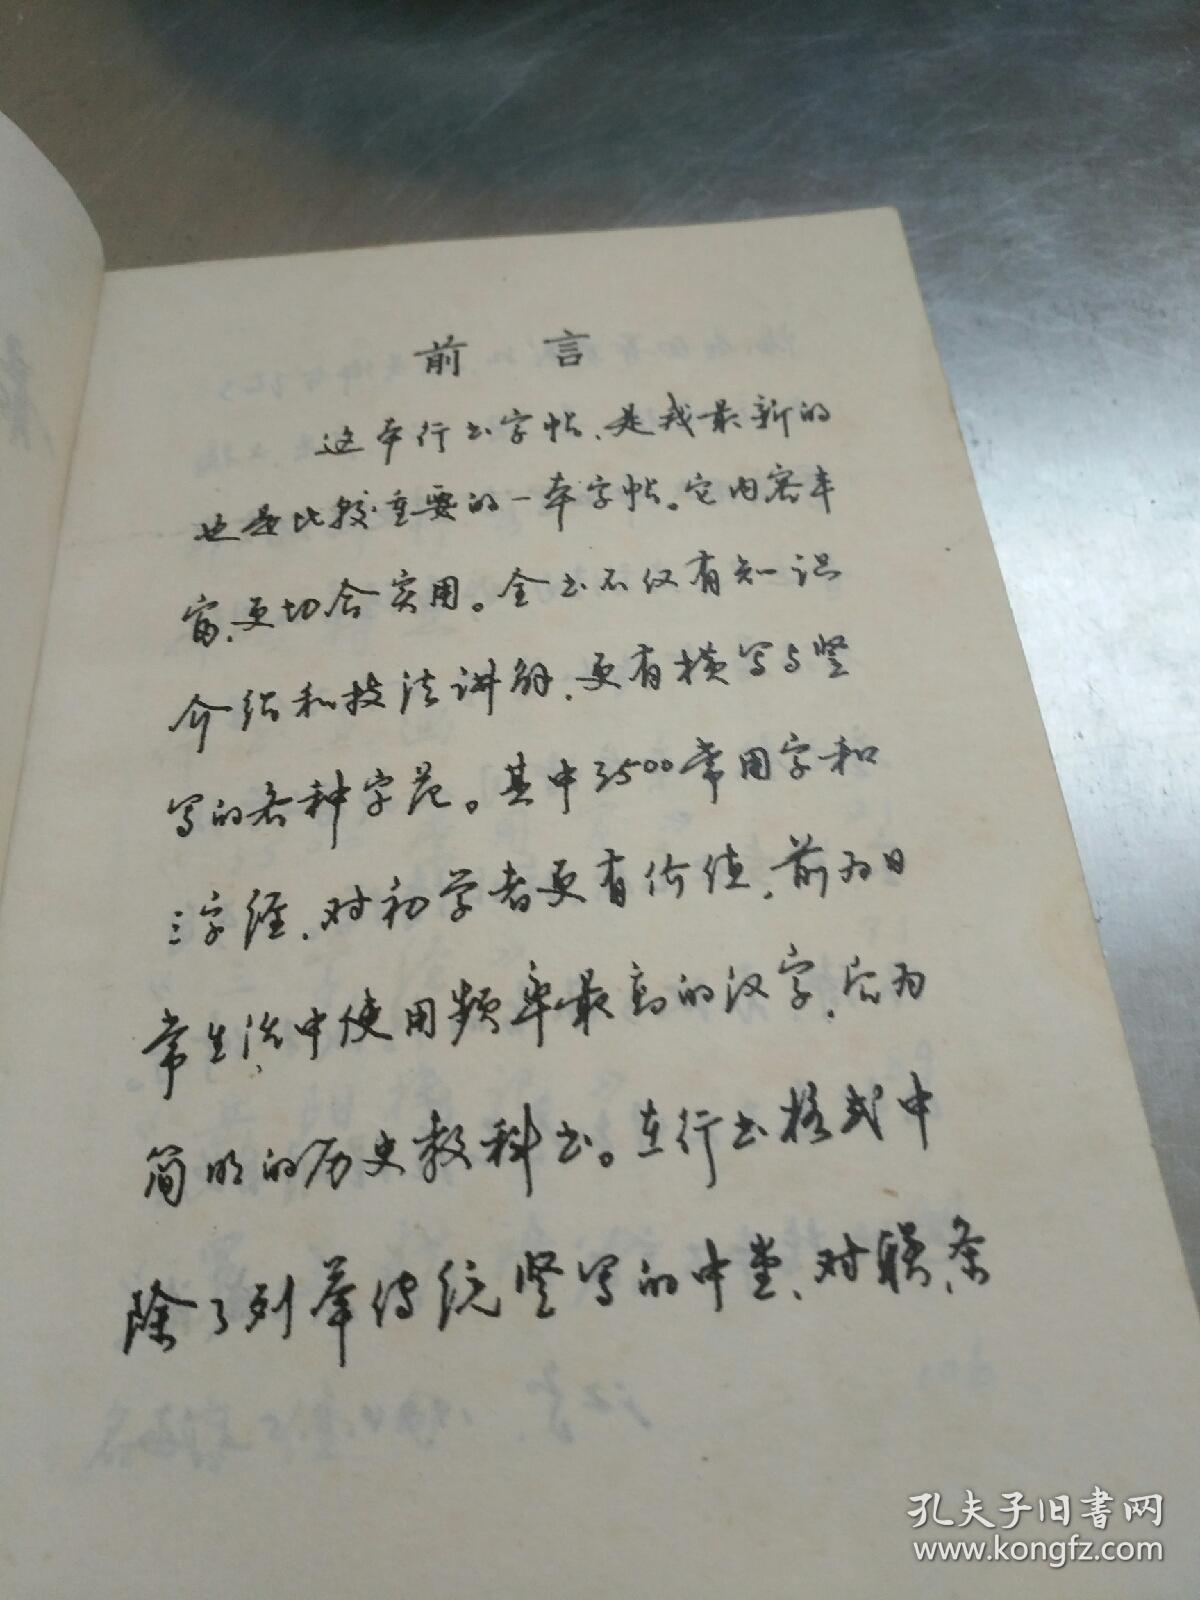 前言
这本行书字帖、是我最新的
也是比较重要的一本字帖。它内容丰
富、更切合实用。全书不仅有知识
介绍和技法讲解、更有横写与竖
写的各种字范。其中3500常用字和
三字经、对初学者更有价值、前为日
常生活中使用频率最高的汉字、后为
简明的历史教科书。在行书格式中
除了列举传统竖写的中堂、对联、条
孔夫子旧书网
www.kongfz.com